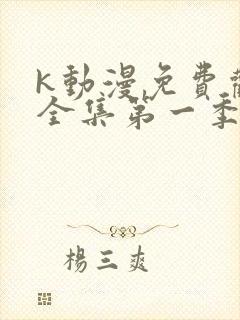 K動漫免費
全集第一季
楊三爽